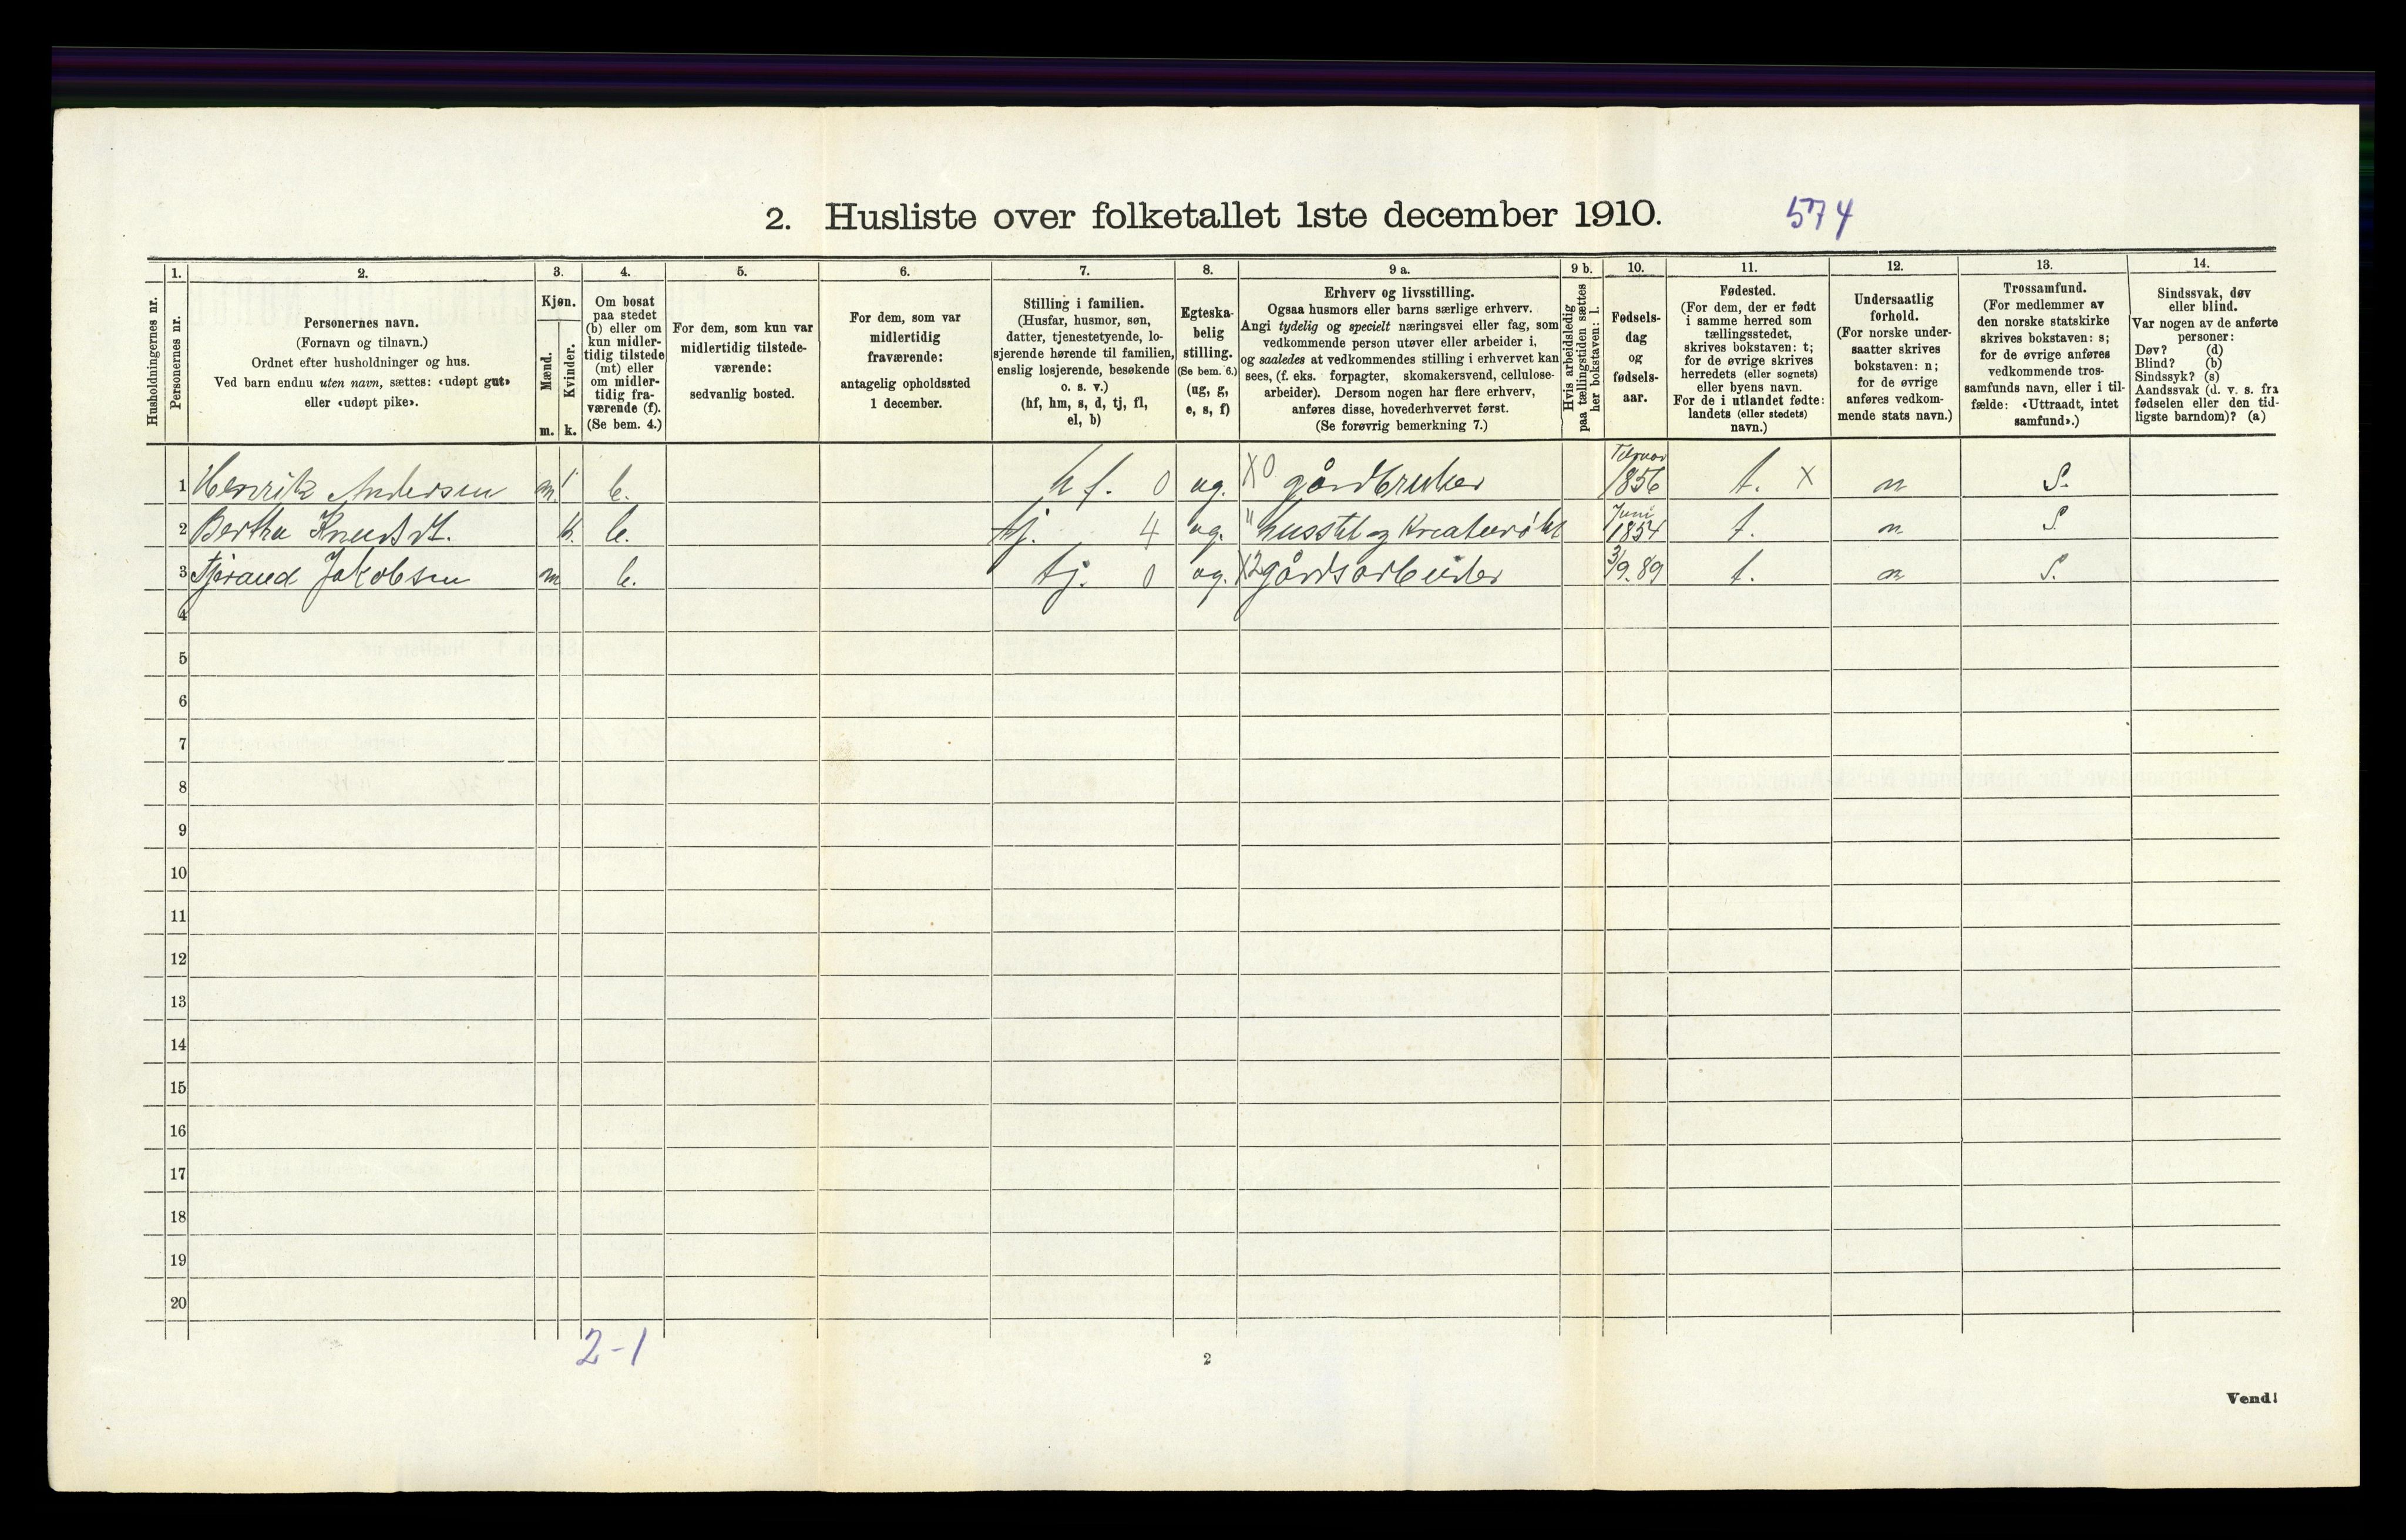 2. Husliste over folketallet 1ste december 1910. 574
Husholdningernes nr.
1.
Personernes nr.
2.
Personernes navn.
(Fornavn og tilnavn.)
Ordnet efter husholdninger og hus.
Ved barn endnu uten navn, sættes: «udøpt gut»
eller «udøpt pike».
3.
Kjøn.
Mænd.
Kvinder.
m. k.
4.
Om bosat
paa stedet
(b) eller om
kun midler-
tidig tilstede
(mt) eller
om midler-
tidig fra-
værende (f).
(Se bem. 4.)
5.
For dem, som kun var
midlertidig tilstede-
værende:
sedvanlig bosted.
6.
For dem, som var
midlertidig
fraværende:
antagelig opholdssted
1 december.
7.
Stilling i familien.
(Husfar, husmor, søn,
datter, tjenestetyende, lo-
sjerende hørende til familien,
enslig losjerende, besøkende
o. s. v.)
(hf, hm, s, d, tj, fl,
el, b)
8.
Egteska-
belig
stilling.
(Se bem. 6.)
(ug, g,
e, s, f)
9 a.
Erhverv og livsstilling.
Ogsaa husmors eller barns særlige erhverv.
Angi tydelig og specielt næringsvei eller fag, som
vedkommende person utøver eller arbeider i,
og saaledes at vedkommendes stilling i erhvervet kan
sees, (f. eks. forpagter, skomakersvend, cellulose-
arbeider). Dersom nogen har flere erhverv,
anføres disse, hovederhvervet først.
(Se forøvrig bemerkning 7.)
9 b.
Hvis arbeidsledig
paa tællingstiden sættes
her bokstaven: l.
10.
Fødsels-
dag
og
fødsels-
aar.
11.
Fødested.
(For dem, der er født
i samme herred som
tællingsstedet,
skrives bokstaven: t;
for de øvrige skrives
herredets (eller sognets)
eller byens navn.
For de i utlandet fødte:
landets (eller stedets)
navn.)
12.
Undersaatlig
forhold.
(For norske under-
saatter skrives
bokstaven: n;
for de øvrige
anføres vedkom-
mende stats navn.)
13.
Trossamfund.
(For medlemmer av
den norske statskirke
skrives bokstaven: s;
for de øvrige anføres
vedkommende tros-
samfunds navn, eller i til-
fælde: «Uttraadt, intet
samfund».)
14.
Sindssvak, døv
eller blind.
Var nogen av de anførte
personer:
Døv? (d)
Blind? (b)
Sindssyk? (s)
Aandssvak (d. v. s. fra
fødselen eller den tid-
ligste barndom)? (a)
1 Henrik Andersen m. 1 b. hf. 0 ug. X0 gårdbruker Februar 1856 t. X n S.
2 Bertha Knudsdt. k. b. tj. 4 ug. " husstel og Kreaturrøkt Juni 1854 t. n S.
3 Tjeraud Jakobsen m b. tj. 0 ug. X2 gårdsarbeider 3/9.89 t. n S.
4
5
6
7
8
9
10
11
12
13
14
15
16
17
18
19
20
2-1
2
Vend!